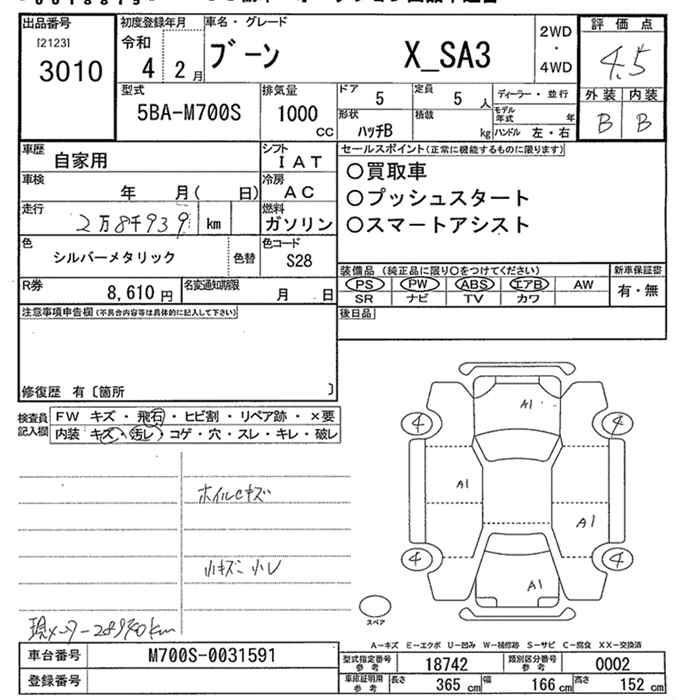 出品番号
[2123]
3010
初度登録年月
令和
4 2月
車名・グレード
ブーン X_SA3
2WD
・
4WD
評価点
4.5
外装 内装
B B
型式
5BA-M700S
排気量
1000
cc
ドア 5
定員 5 人
形状 ハッチB
積載 kg
ディーラー・並行
モデル年式 年
ハンドル 左・右
車歴 自家用
シフト IAT
車検 年 月( 日)
冷房 AC
走行 2万8千939 km
燃料 ガソリン
色 シルバーメタリック 色替
色コード S28
R券 8,610円
名変通知期限 月 日
セールスポイント(正常に機能するものに限ります)
○買取車
○プッシュスタート
○スマートアシスト
装備品(純正品に限り○をつけてください)
新車保証書
PS PW ABS エアB AW 有・無
SR ナビ TV カワ
後日品
注意事項申告欄(不具合内容等は具体的に記入して下さい)
修復歴 有〔箇所 〕
検査員記入欄
FW キズ・飛石・ヒビ割・リペア跡・×要
内装 キズ・汚レ・コゲ・穴・スレ・キレ・破レ
ホイルCキズ
小キズ 小レ
A1
4 4
A1
A1
4 4
A1
スペア
A-キズ E-エクボ U-凹み W-補修跡 S-サビ C-腐食 XX-交換済
車台番号 M700S-0031591
登録番号
型式指定番号参考 18742
類別区分番号参考 0002
車庫証明用参考 長さ 365cm 幅 166cm 高さ 152cm